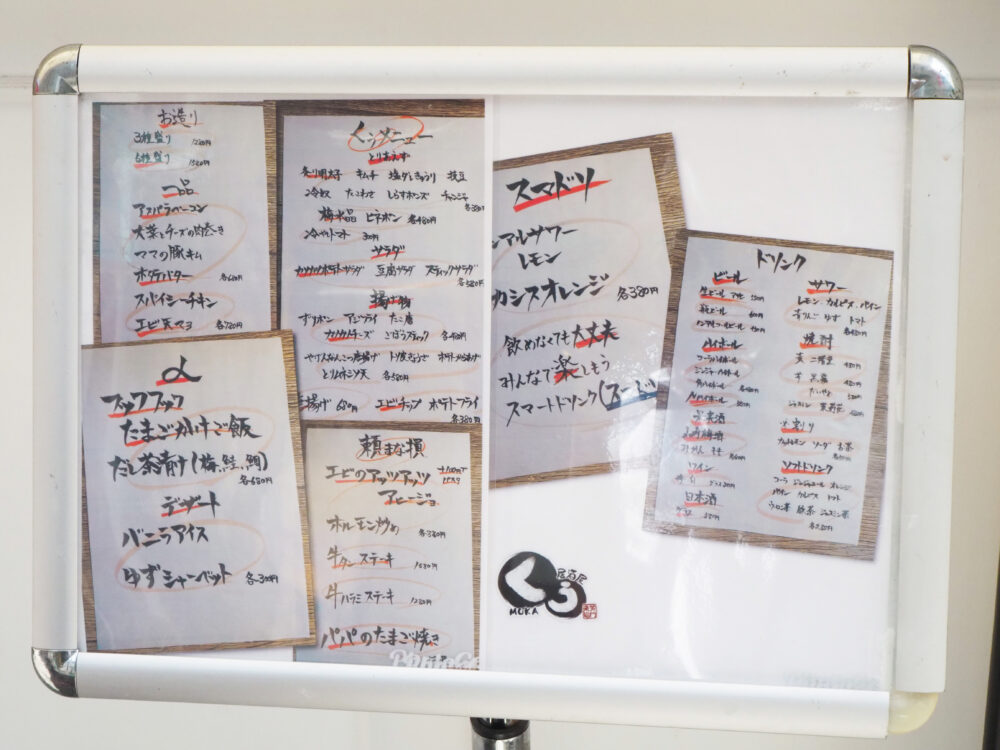 お造り
3種盛り
5種盛り
一品
アスパラベーコン
大葉とチーズの肉巻き
ママの豚キム
ホタテバター 各680円
スパイシーチキン
エビ天マヨ 各780円
メニュー
とりあえず
炙り明太子 キムチ 塩だしきゅうり 枝豆
冷奴 たこわさ しらすポンズ チャンジャ
各380
梅水晶 各480円
冷やトマト 300円
サラダ
カリカリポテトサラダ 豆腐サラダ スティックサラダ
各580円
揚げ物
ずりポン アジフライ たこ唐
カリカリチーズ ごぼうスティック 各480円
とりムネシソ天 各580円
手揚げ 680円 エビチップ ポテトフライ
各380円
〆
フッワフッワ
たまごかけご飯
だし茶漬け(梅,鮭,鯛)
各680円
デザート
バニラアイス
ゆずシャーベット 各300円
頼まな損
エビのアッツアッツ
アヒージョ
ホルモン炒め
牛タンステーキ
牛ハラミステーキ
パパのたまご焼き
スマドリ
アルサワー
レモン
カシスオレンジ 各380円
飲めなくても大丈夫
みんなで楽しもう
スマートドリンク(スードリ
ドリンク
ビール
生ビール
瓶ビール
ノンアルコールビール
ハイボール
コークハイボール
ジンジャーハイボール
果実酒
梅酒
ワイン
日本酒
サワー
レモン カルピス パイン
青りんご ゆず トマト
焼酎
麦 二階堂
芋 黒霧
水割り
ソーダ お茶
ソフトドリンク
コーラ ジンジャエール オレンジ
パイン カルピス トマト
ウーロン茶 緑茶 ジャスミン茶
居酒屋
MOKA